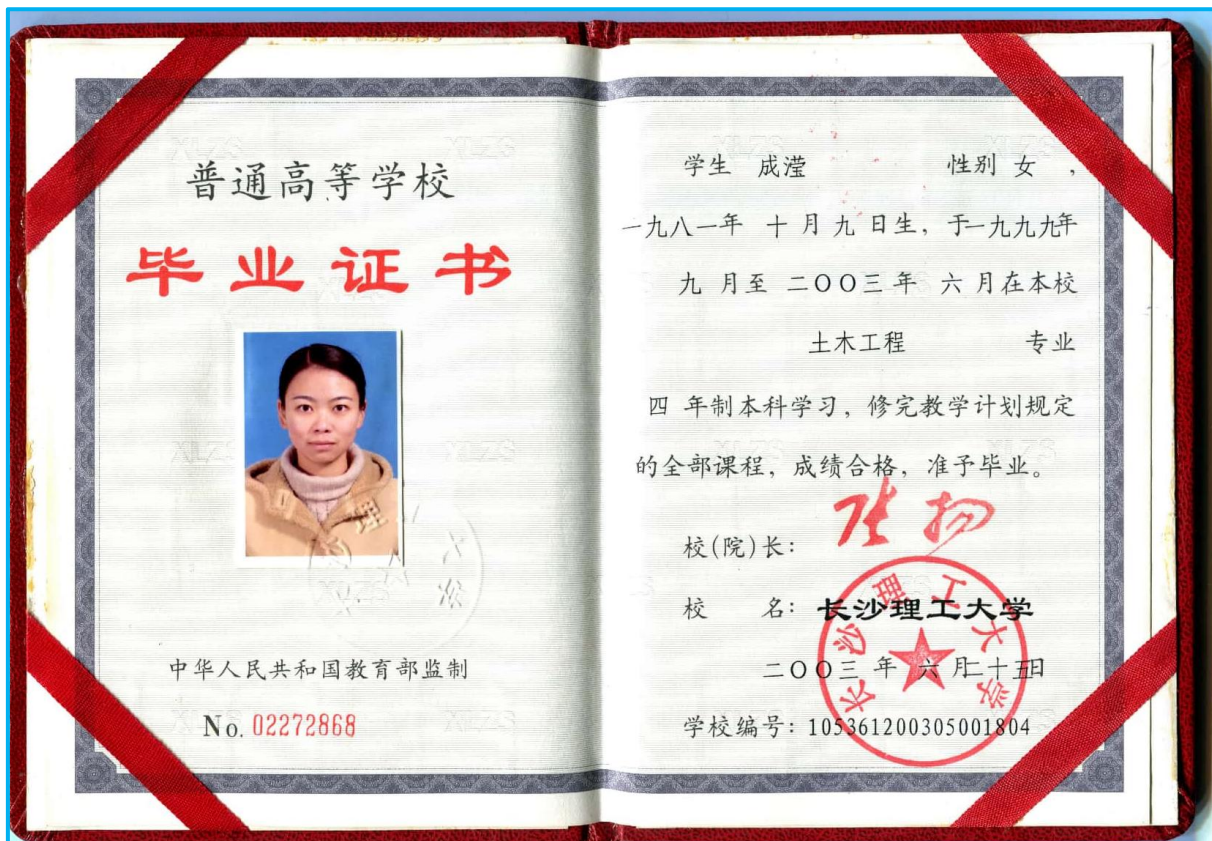 普通高等学校
毕业证书
中华人民共和国教育部监制
No. 02272868
学生 成滢 性别 女 ,
一九八一年 十 月 九 日生, 于一九九九年
九 月至 二〇〇三年 六 月在本校
土木工程 专业
四 年制本科学习, 修完教学计划规定
的全部课程, 成绩合格, 准予毕业。
校(院)长:
校 名: 长沙理工大学
二〇〇三 年 六 月二十五日
学校编号: 105361200305001804
长沙理工大学
XLZS